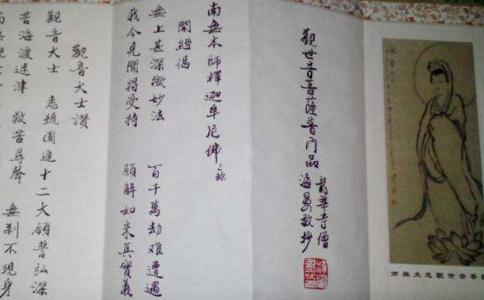 南無大悲觀世音菩
觀世音菩薩普門品
龍華寺僧
海敬抄
南無本師釋迦牟尼佛 三稱
開經偈
無上甚深微妙法 百千萬劫難遭遇
我今見聞得受持 願解如來真實義
觀音大士讚
觀音大士 悉號圓通 十二大願誓弘深
苦海渡迷津 救苦尋聲 無剎不現身